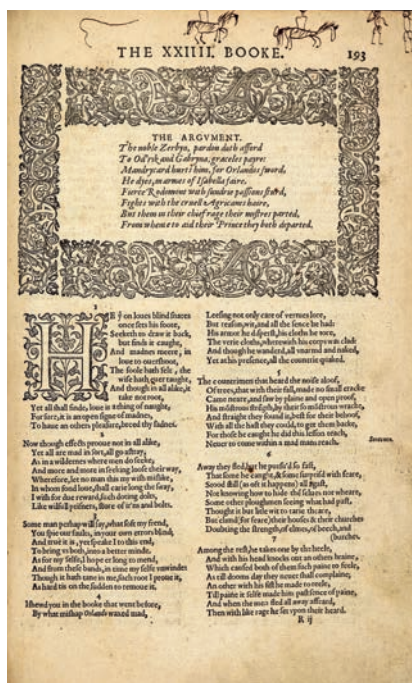 THE XXIIII. BOOKE.
193
THE ARGVMENT.
The noble Zerbyn, pardon doth afford
To Od'rik and Gabryna, graceles payre:
Mandrycard hurts him, for Orlandos sword,
He dyes, in armes of Isabella faire,
Fierce Rodomont with sundrie passions sturd,
Fights with the cruell Agricanes haire,
But them in their chief rage their mistres parted,
From whence to aid their Prince they both departed.
1
HE ẏ on loues blind snares
once sets his foote,
Seeketh to draw it back,
but finds it caught,
And madnes meere, in
loue to ouershoot,
The foole hath felt, the
wise hath euer taught,
And though in all alike, it
take not root,
Yet all shall finde, loue is a thing of naught,
For sure, it is an open signe of madnes,
To haue an others pleasure, breed thy sadnes.
2
Now though effects prooue not in all alike,
Yet all are mad in sort, all go astray,
As in a wildernes where men do seeke,
And more and more in seeking loose their way,
Wherefore, let no man this my wish mislike,
In whom fond loue, shall carie long the sway,
I wish for due reward, such doting dolts,
Like wilfull prisners, store of irons and bolts.
3
Some man perhap will say, what soft my friend,
You spie our faults, in your own errors blind,
And true it is, yet speake I to this end,
To bring vs both, into a better minde.
As for my selfe, I hope er long to mend,
And from these bands, in time my selfe vnwinde
Though it hath tane in me, such root I proue it,
As hard tis on the sudden to remoue it.
4
I shewd you in the booke that went before,
By what mishap Orlando waxed mad,
Leesing not only care of vertues lore,
But reason, wit, and all the sence he had:
His armor he disperst, his cloths he tore,
The verie cloths, wherewith his corps was clad:
And though he wanderd, all vnarmd and naked,
Yet at his presence, all the countrie quaked.
5
The countrimen that heard the noise aloof,
Of trees, that with their fall, made no small cracke
Came neare, and saw by plaine and open proof,
His mõstrous strẽgth, by their so mõstrous wracke,
And straight they found it, best for their behoof,
With all the hast they could, to get them backe,
For those he caught he did this lesson teach,
Neuer to come within a mad mans reach.
6
Away they fled, but he pursu'd so fast,
That some he caught, & some surprisd with feare,
Stood still (as oft it happens) all agast,
Not knowing how to hide the selues nor wheare,
Some other ploughmen seeing what had past,
Thought it but little wit to tarie theare,
But climd (for feare) their houses & their churches
Doubting the strength, of elmes, of beech,
(burches.
7
Among the rest, he takes one by the heele,
And with his head knocks out an others braine,
Which caused both of them such paine to feele,
As till dooms day they neuer shall complaine,
An other with his fist he made to reele,
Till paine it selfe made him past sence of paine,
And when the men fled all away affeard,
Then with like rage he set vpon their heard.
R ij